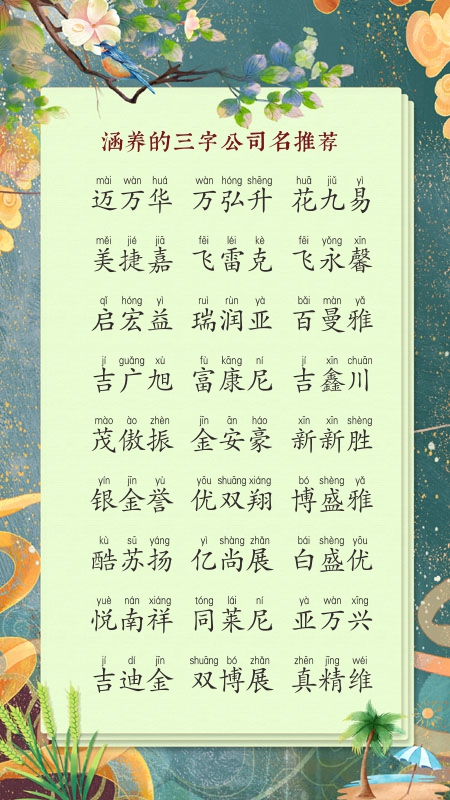 涵养的三字公司名推荐
mài wàn huá wàn hóng shēng huā jiǔ yì
迈万华 万弘升 花九易
měi jié jiā fēi léi kè fēi yǒng xīn
美捷嘉 飞雷克 飞永馨
qǐ hóng yì ruì rùn yà bǎi màn yǎ
启宏益 瑞润亚 百曼雅
jí guǎng xù fù kāng ní jí xīn chuān
吉广旭 富康尼 吉鑫川
mào ào zhèn jīn ān háo xīn xīn shèng
茂傲振 金安豪 新新胜
yín jīn yù yōu shuāng xiáng bó shèng yǎ
银金誉 优双翔 博盛雅
kù sū yáng yì shàng zhǎn bái shèng yōu
酷苏扬 亿尚展 白盛优
yuè nán xiáng tóng lái ní yà wàn xīng
悦南祥 同莱尼 亚万兴
jí dí jīn shuāng bó zhǎn zhēn jīng wéi
吉迪金 双博展 真精维